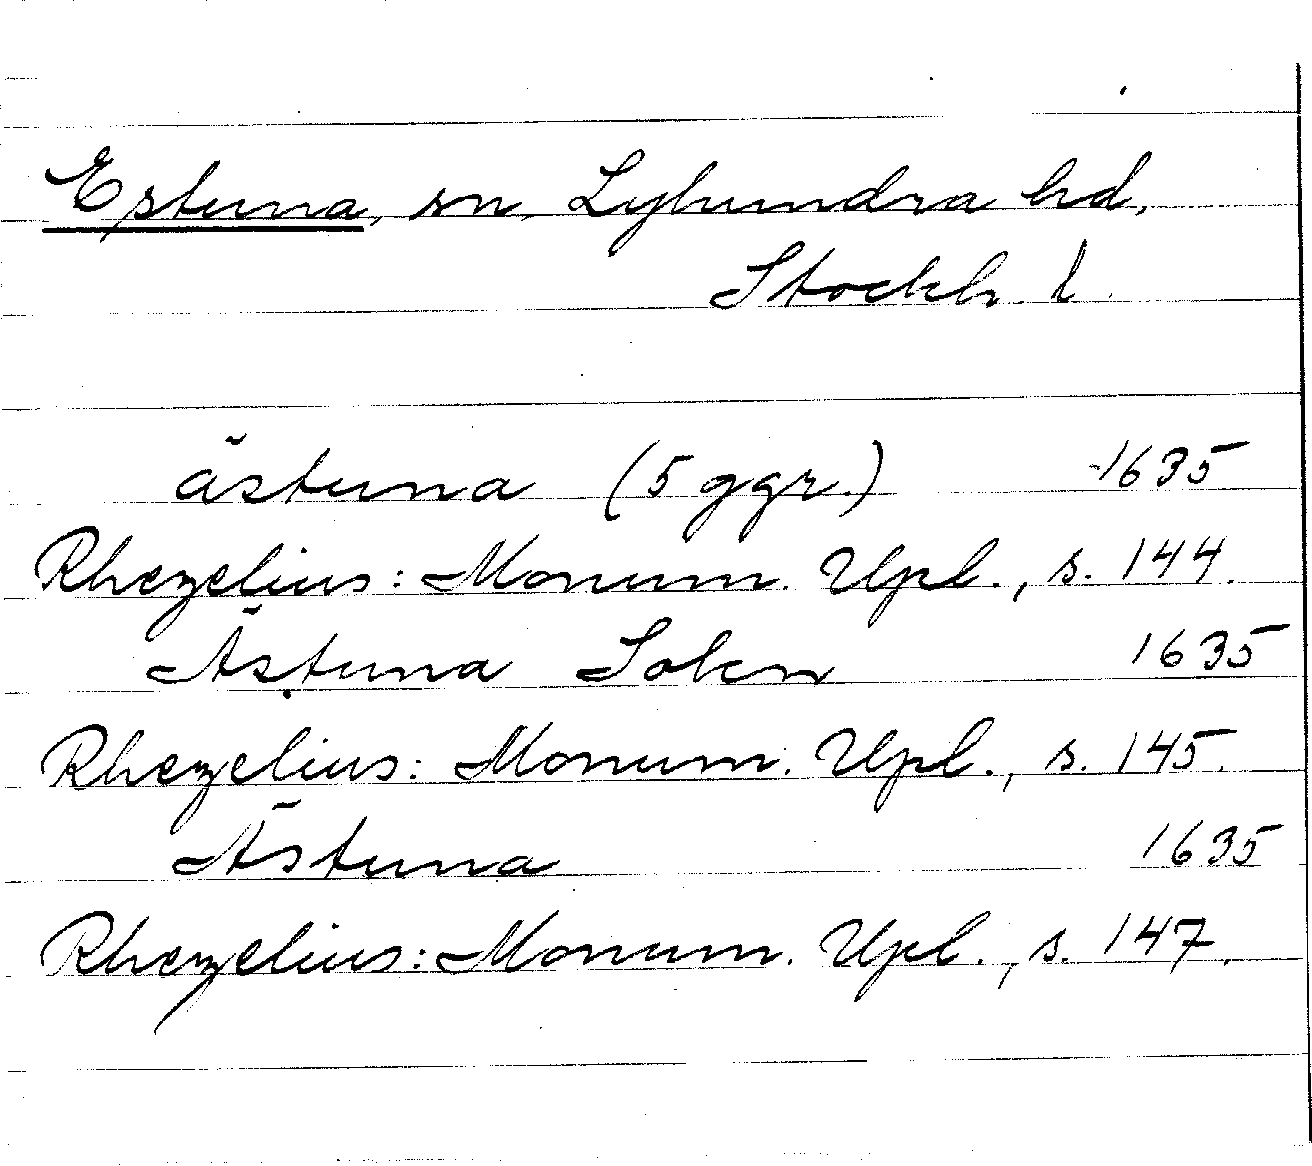 Estuna, sn, Lyhundra hd,
Stockh. l.
ästuna (5 ggr.) 1635
Rhezelius: Monum. Upl., s. 144.
Ästuna Sokn 1635
Rhezelius: Monum. Upl., s. 145.
Ästuna 1635
Rhezelius: Monum. Upl., s. 147.